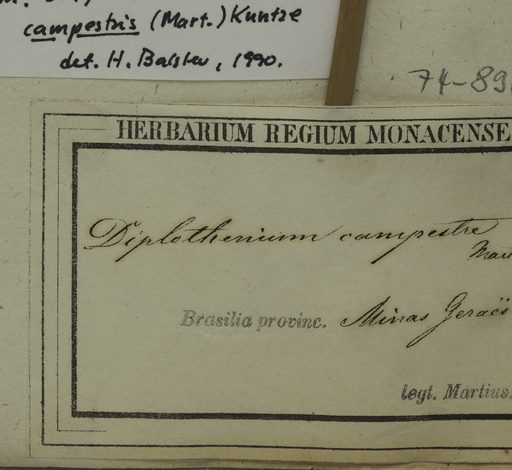 campestris (Mart.) Kuntze
det. H. Balslev, 1990.
74-89
HERBARIUM REGIUM MONACENSE
Diplothenium campestre
Mart
Brasilia provinc. Minas Geraës
legt. Martius.